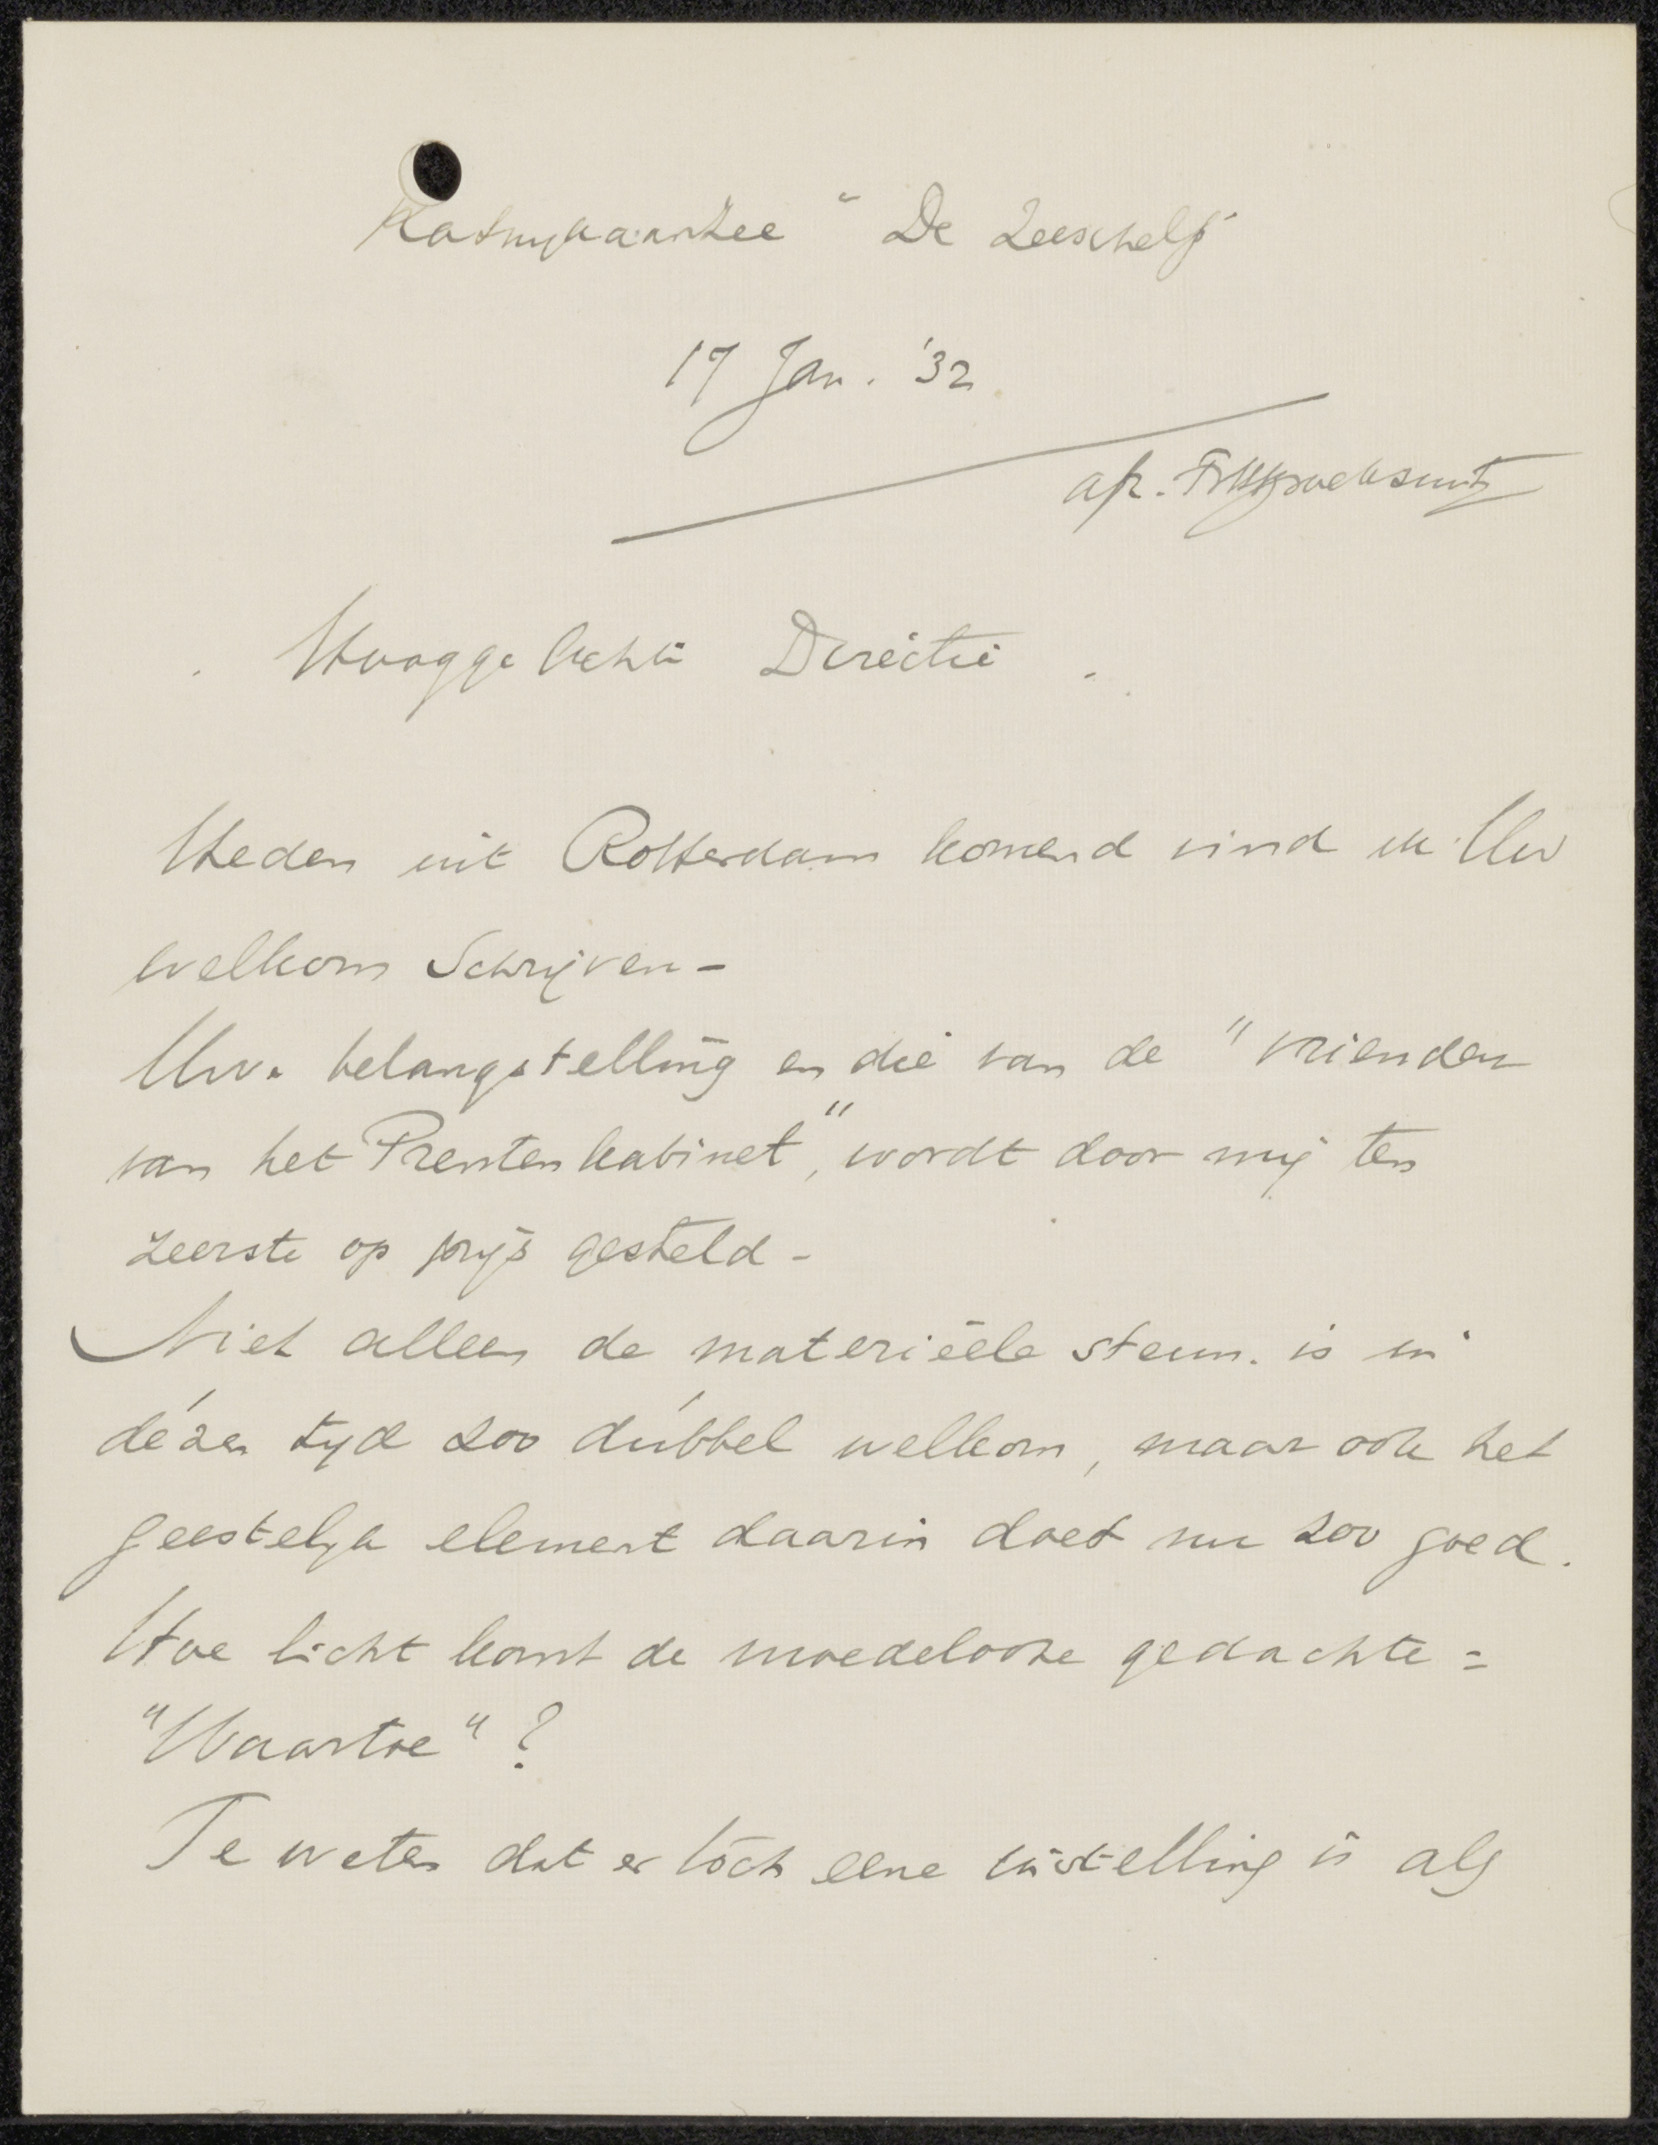 Katwijkaanzee "De Zeeschelp"
17 Jan. '32
afz.
Hooggeachte Directie.
Heden uit Rotterdam komend vind ik Uw
welkom Schrijven -
Uw belangstelling en die van de "vrienden
van het Prentenkabinet", wordt door mij ten
zeerste op prijs gesteld -
Niet alleen de materiëele steun is in
dézen tijd zoo dúbbel welkom, maar ook het
geestelijk element daarin doet nu zoo goed.
Hoe licht komt de moedelooze gedachte =
"Waartoe"?
Te weten dat er tòch eene instelling is als